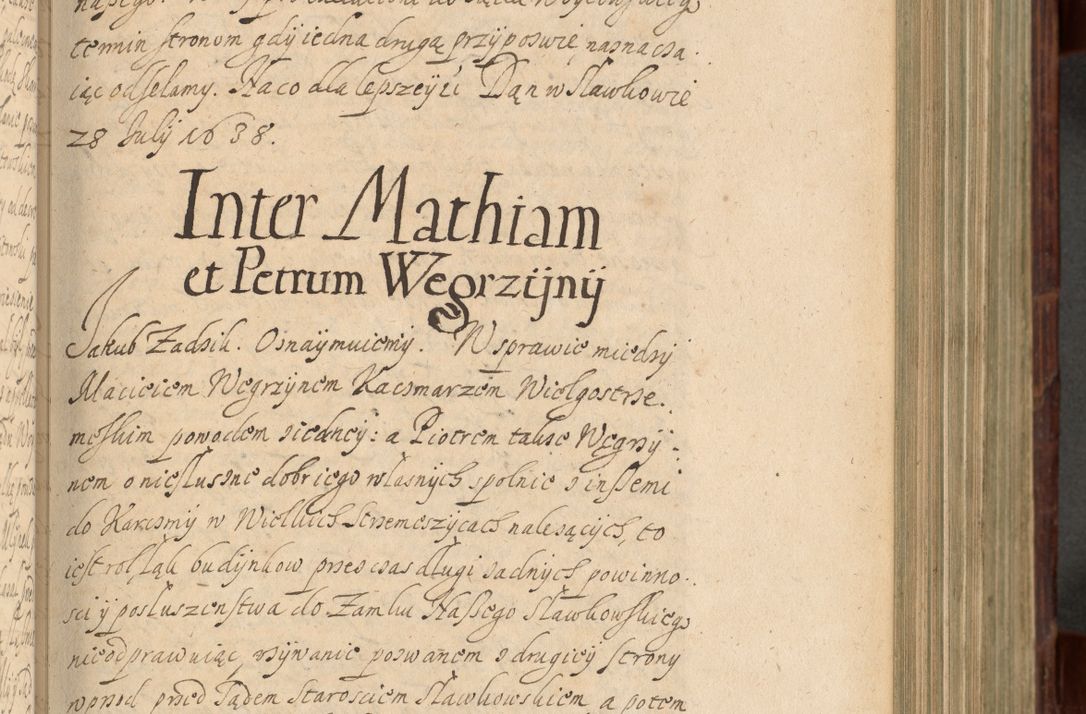 termin stronom gdÿ iedna drugą przÿposwię nasnacsa
iąc odsełamy. Na co dla lepszeÿ ει Dąn w Sławkowie
28 Julÿ 1638.
Inter Mathiam
et Petrum Wegrzÿnÿ
Jakub Zadsik. Osnaÿmuiemÿ. W sprawie miedsÿ
Macieiem Wegrzÿnem Kacsmarzem Wielgostrse.
meskim powodem siednej: a Piotrem takse Węgrsÿ-
nem o niesłusne dobr iego własnÿch spolnie s inßemi
do Karcsmÿ w Wielkich Strsemeszÿcach nalesącÿch, to
iest rol, ląk budÿnkow prses csas długi sadnÿch powinno.
sci ÿ posłuszenstwa do Zamku Naßego Sławkowskiego
nieodprawuiąc, vsÿwanie poswanem s drugieÿ strony
wprsod prsed Sądem Starosciem Sławkowskiem a potem